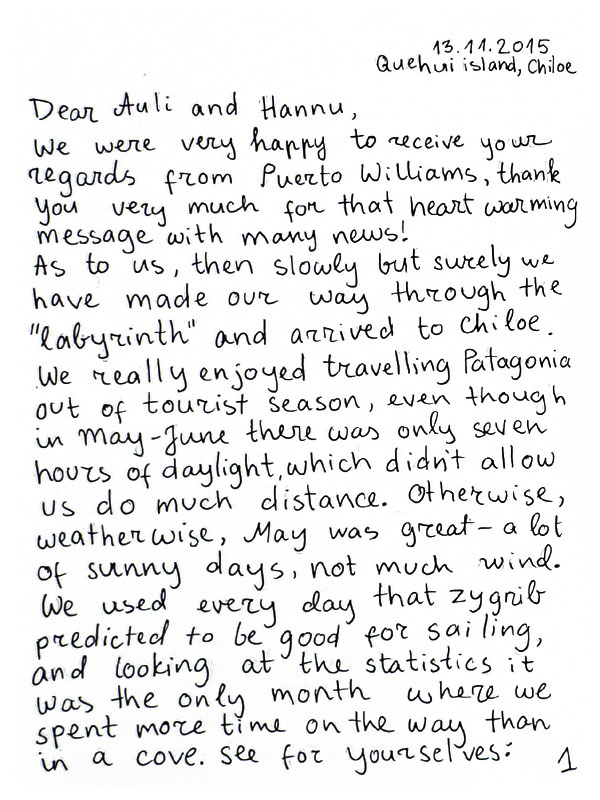 13.11.2015
Quehui island, Chiloe
Dear Auli and Hannu,
We were very happy to receive your
regards from Puerto Williams, thank
you very much for that heart warming
message with many news!
As to us, then slowly but surely we
have made our way through the
"labyrinth" and arrived to Chiloe.
We really enjoyed travelling Patagonia
out of tourist season, even though
in May-June there was only seven
hours of daylight, which didn't allow
us do much distance. Otherwise,
weatherwise, May was great - a lot
of sunny days, not much wind.
We used every day that zygrib
predicted to be good for sailing,
and looking at the statistics it
was the only month where we
spent more time on the way than
in a cove. See for yourselves:
1